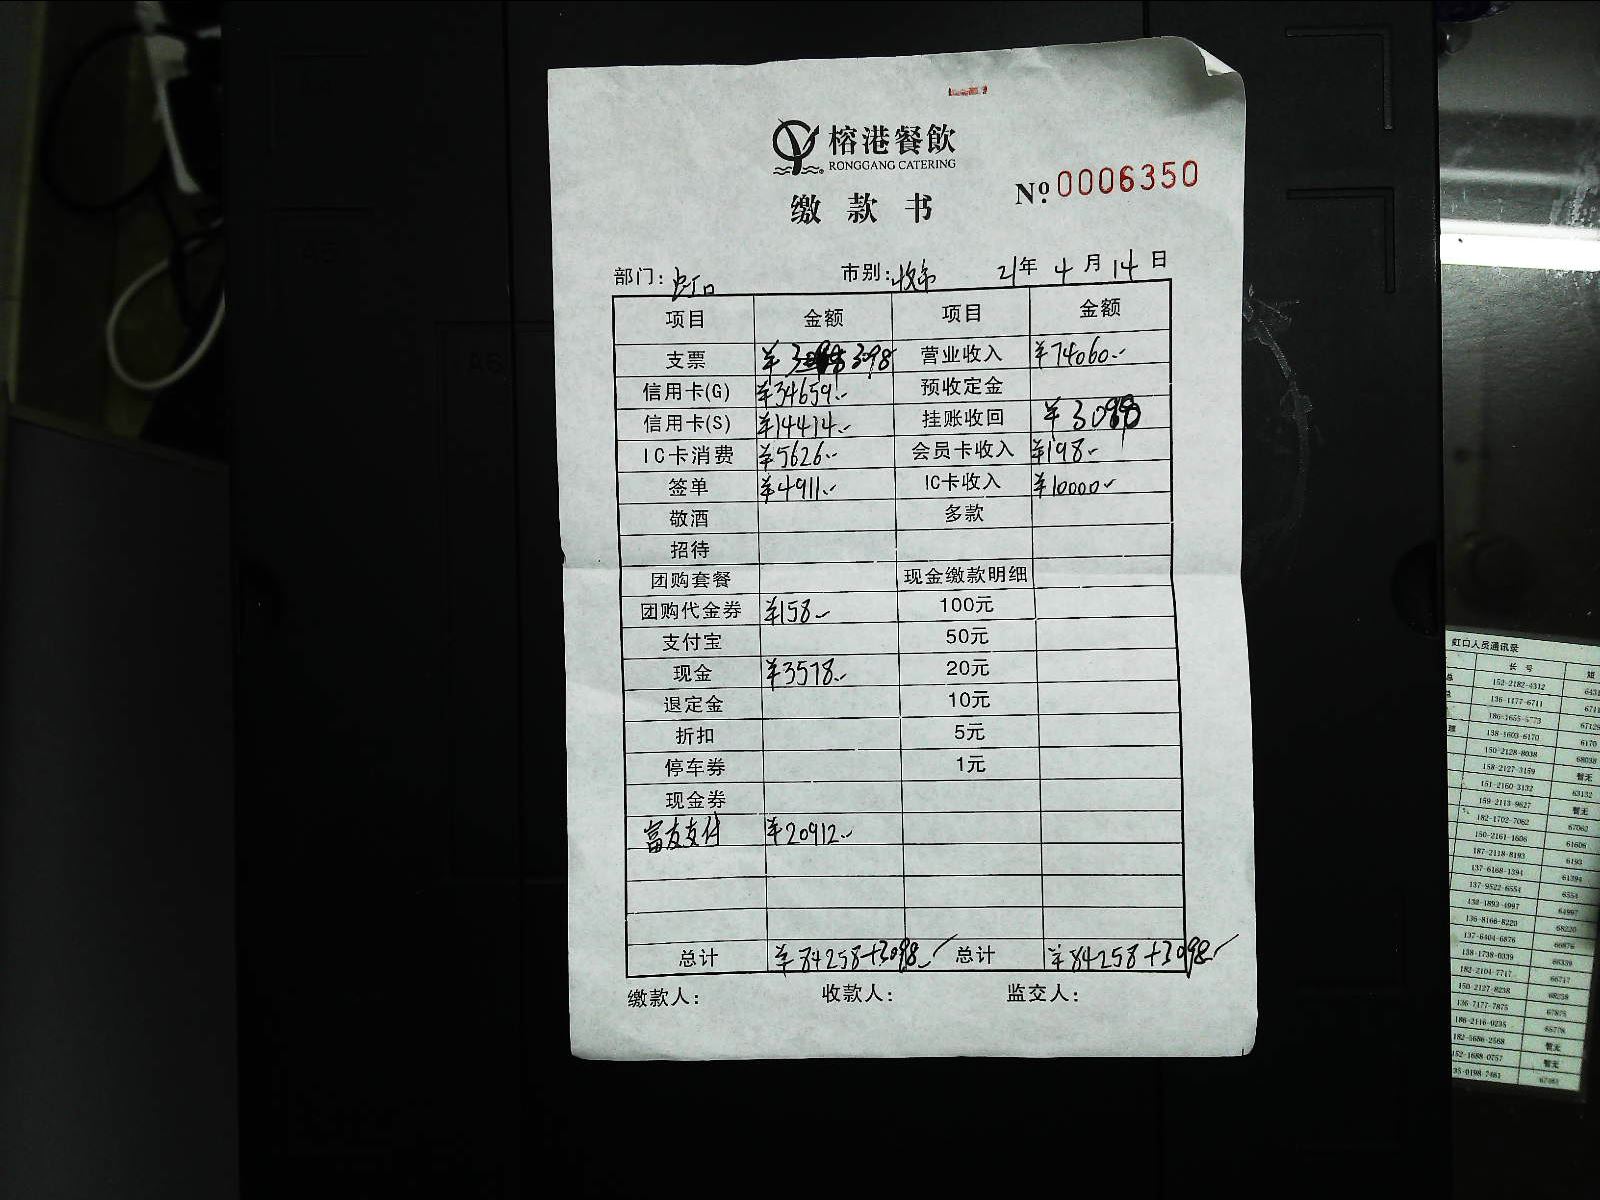 榕港餐飲
RONGGANG CATERING
缴款书
Nº 0006350
部门: 虹口 市别: 收市 21年 4月 14日
项目 金额 项目 金额
支票 ¥3098 营业收入 ¥74060.-
信用卡(G) ¥34659.- 预收定金
信用卡(S) ¥14414.- 挂账收回 ¥3098
IC卡消费 ¥5626.- 会员卡收入 ¥198.-
签单 ¥4911.- IC卡收入 ¥10000.-
敬酒 多款
招待
团购套餐 现金缴款明细
团购代金券 ¥158.- 100元
支付宝 50元
现金 ¥3578.- 20元
退定金 10元
折扣 5元
停车券 1元
现金券
富友支付 ¥20912.-
总计 ¥84258+3098.- 总计 ¥84258+3098.-
缴款人: 收款人: 监交人:
虹口人员通讯录
长号 短
152-2182-4312
136-1177-6711
138-1603-6170 6170
150-2128-8038 68038
158-2127-3159 暂无
151-2160-3132 63132
159-2113-9627 暂无
182-1702-7062 67062
150-2161-1606 61606
187-2118-8193 6193
137-6168-1394 61394
137-9522-6554 6554
138-1893-4997 64997
136-8166-8220 68220
137-6404-6876 66876
138-1738-6339 66339
182-2104-7717 66717
150-2127-8238 68238
136-7177-7875 67875
暂无
暂无